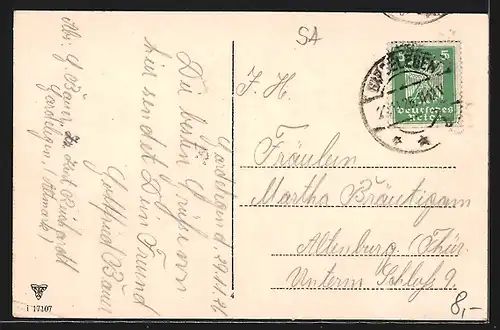 Abs: G. Bauer
Gardelegen. (Altmark)
Gardelegen d. 29.11.26
Die besten Grüße von
hier sendet Dein Freund
Gottfried Bauer
SA
GARDELEGEN
5
Deutsches
Reich
F. H.
Fräulein
Martha Bräutigam
Altenburg (Thür.
Unterm Schloß 9.
i 17107
8,-